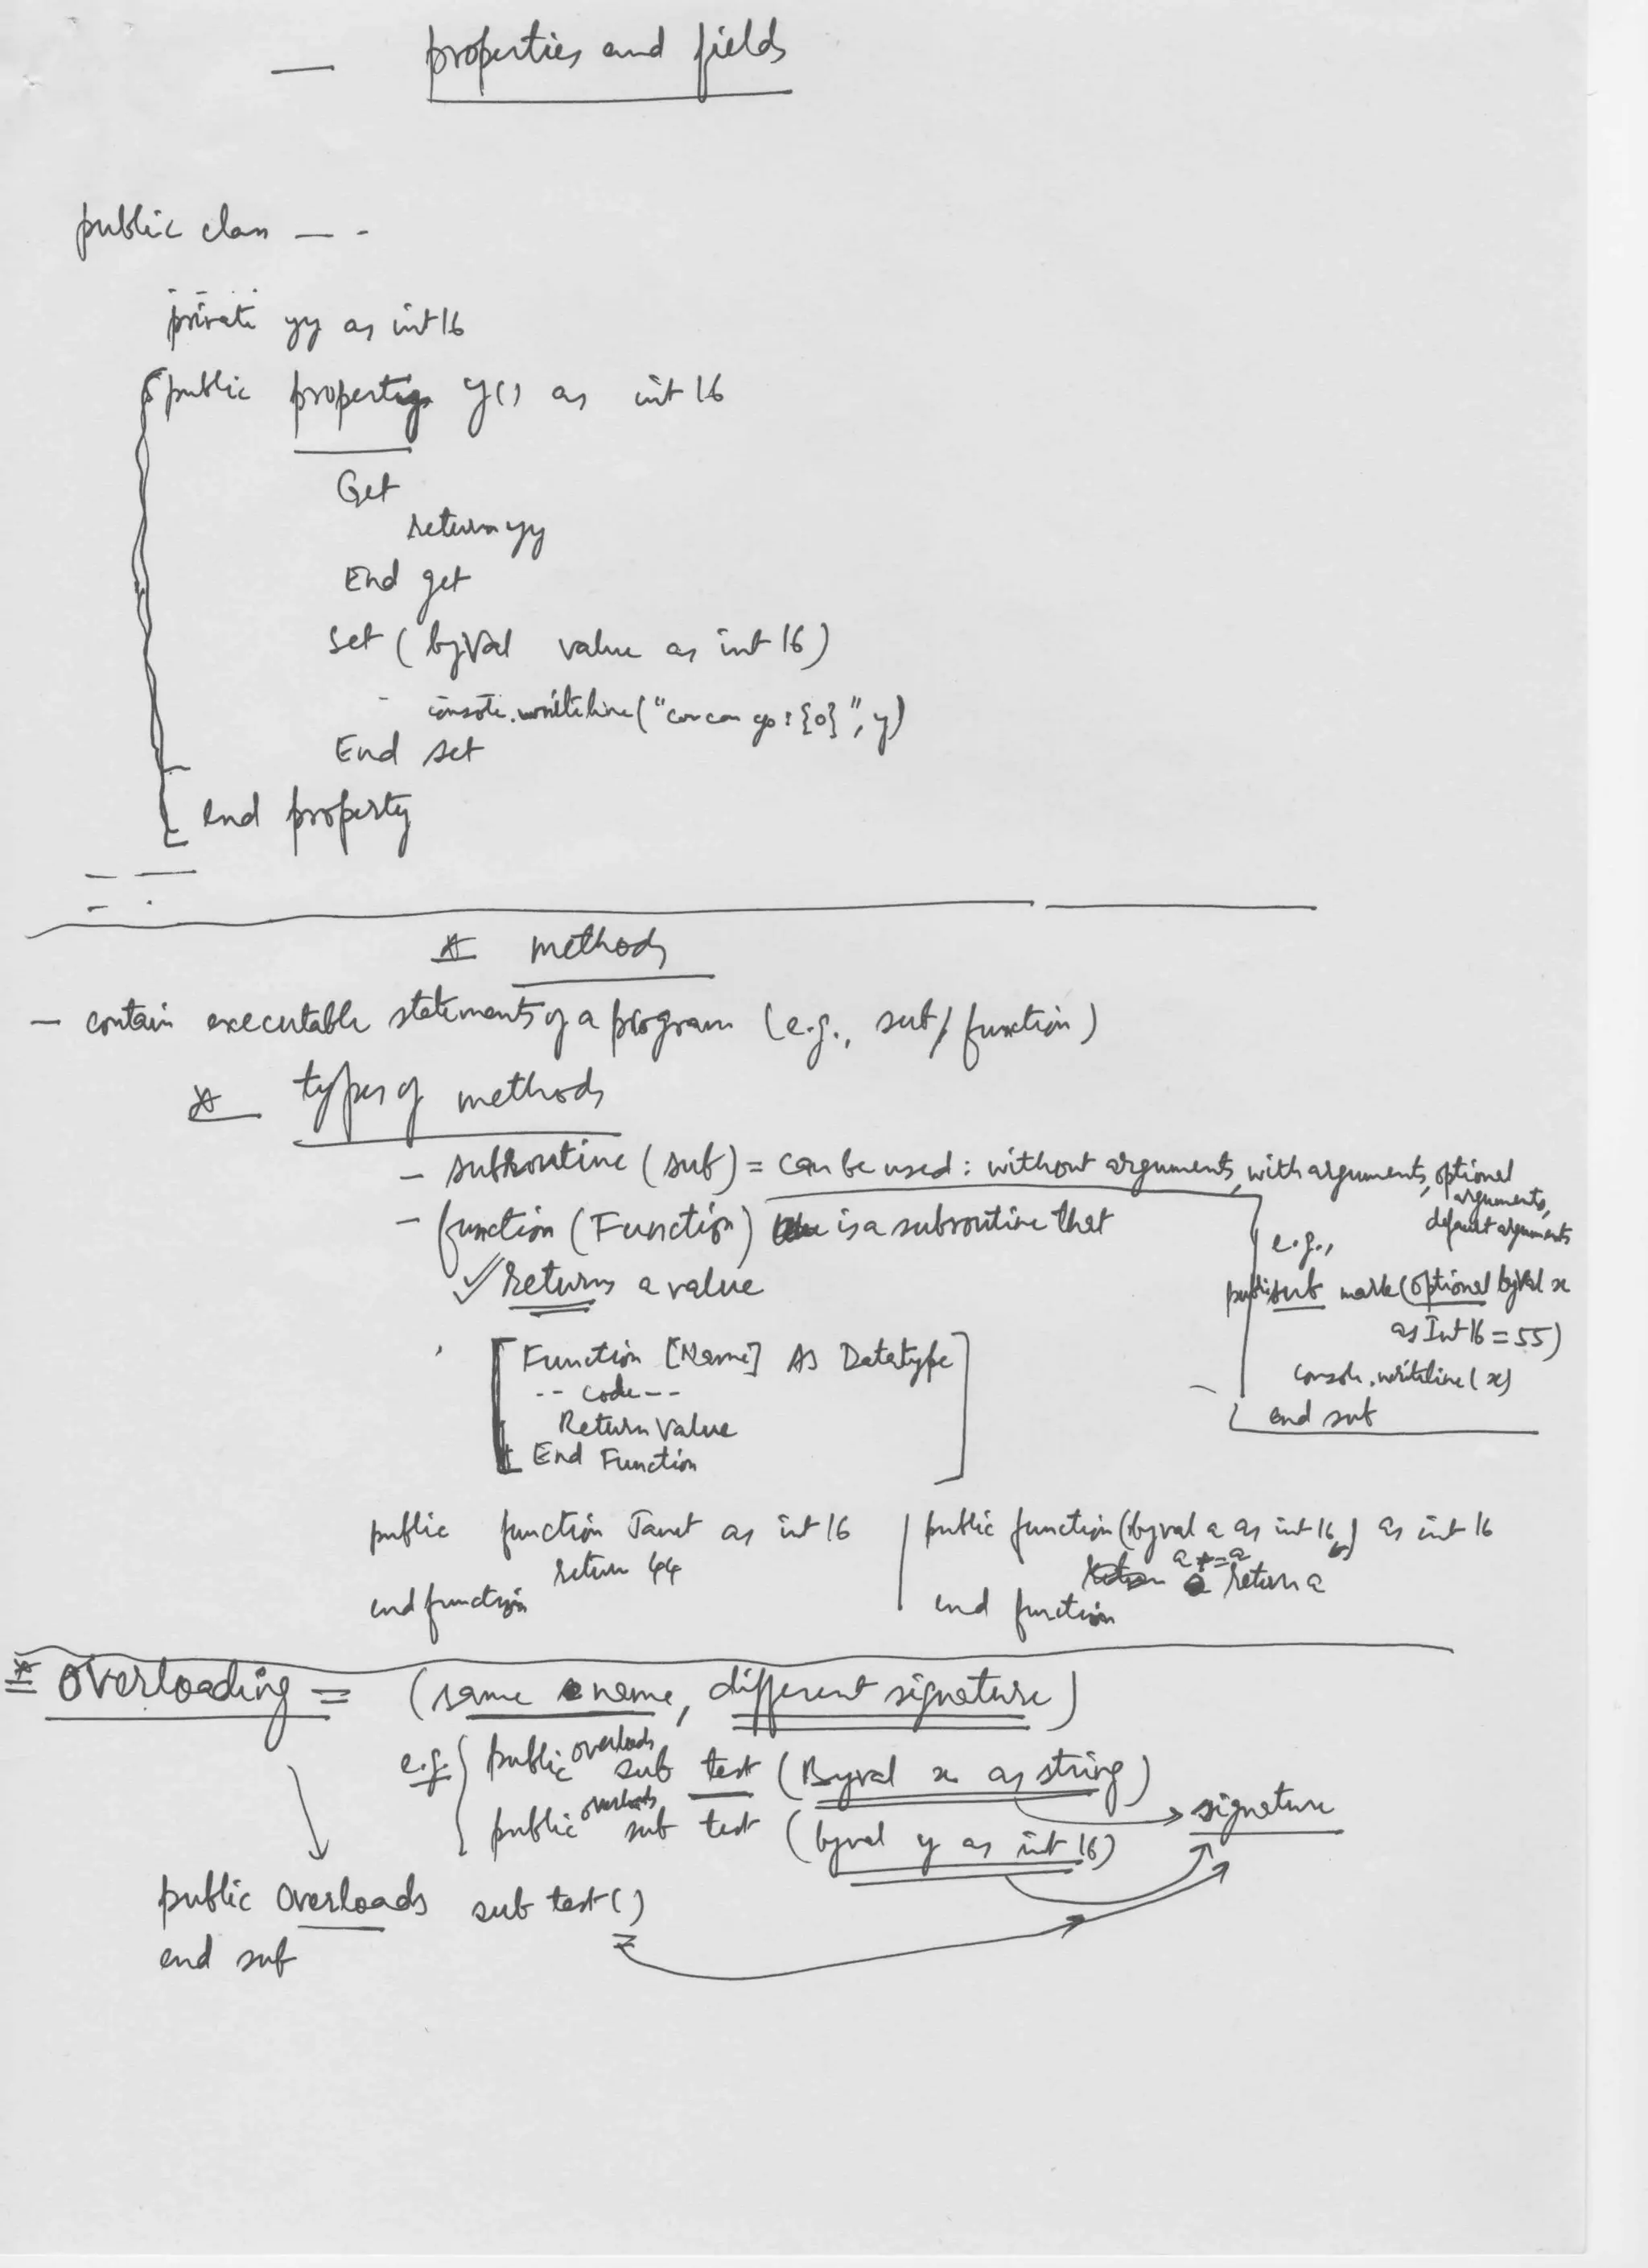 — properties and fields
public class — -
private yy as int16
public property y() as int 16
Get
return yy
End get
set ( byVal value as int 16)
console.writeline("car can go : {0}", y)
End set
end property
* methods
— contain executable statements of a program (e.g., sub/function)
* types of methods
- subroutine (sub) = can be used : without arguments, with arguments, optional arguments, default arguments
- function (Function) is a subroutine that
✓ returns a value
e.g.,
public sub mark (optional byVal x
as Int 16 = 55)
console.writeline(x)
end sub
Function [Name] As Datatype
-- code --
Return Value
End Function
public function Janet as int 16
return 44
end function
public function (byval a as int 16) as int 16
return a
end function
* overloading = (same name, different signature)
e.g. public overloads sub test (Byval x as string)
public overloads sub test (byval y as int 16)
signature
public overloads sub test ()
end sub